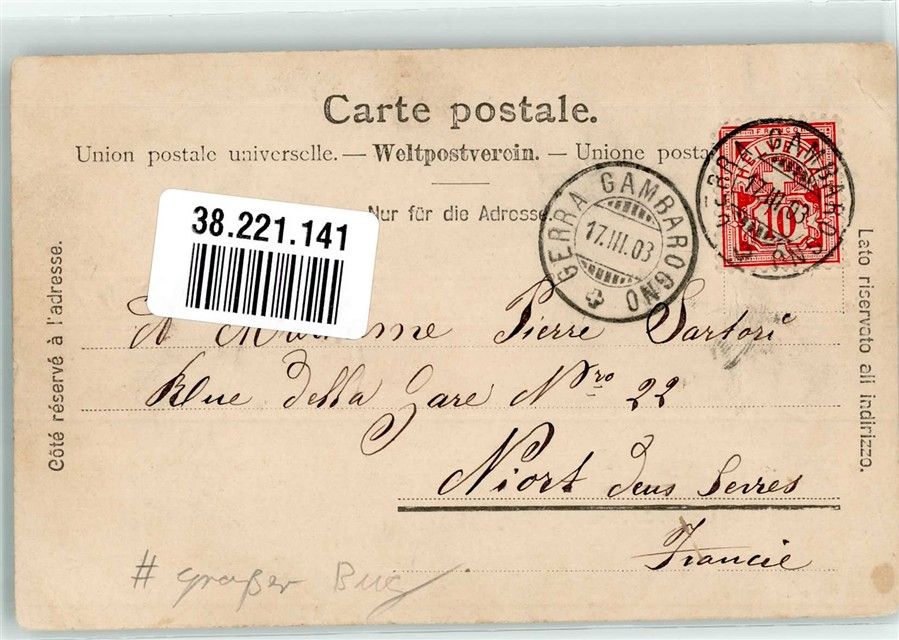 Carte postale.
Union postale universelle. — Weltpostverein. — Unione posta
Nur für die Adresse
38.221.141
GERRA GAMBAROGNO
17.III.03
FRANCO
HELVETIA
10
GERRA GAMBAROGNO
17.III.03
Côté réservé à l'adresse.
Lato riservato all indirizzo.
A Madame Pierre Sartori
Rue della Gare Nro 22
Niort deus Serres
Francie
# großer Bug